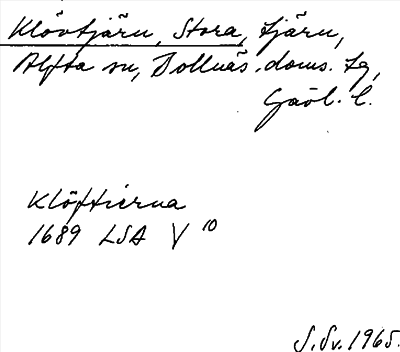 Klövtjärn, Stora, tjärn,
Alfta sn, Bollnäs doms. tg,
Gävl. l.
Klöftierna
1689 LSA V 10
S. Sv. 1965.